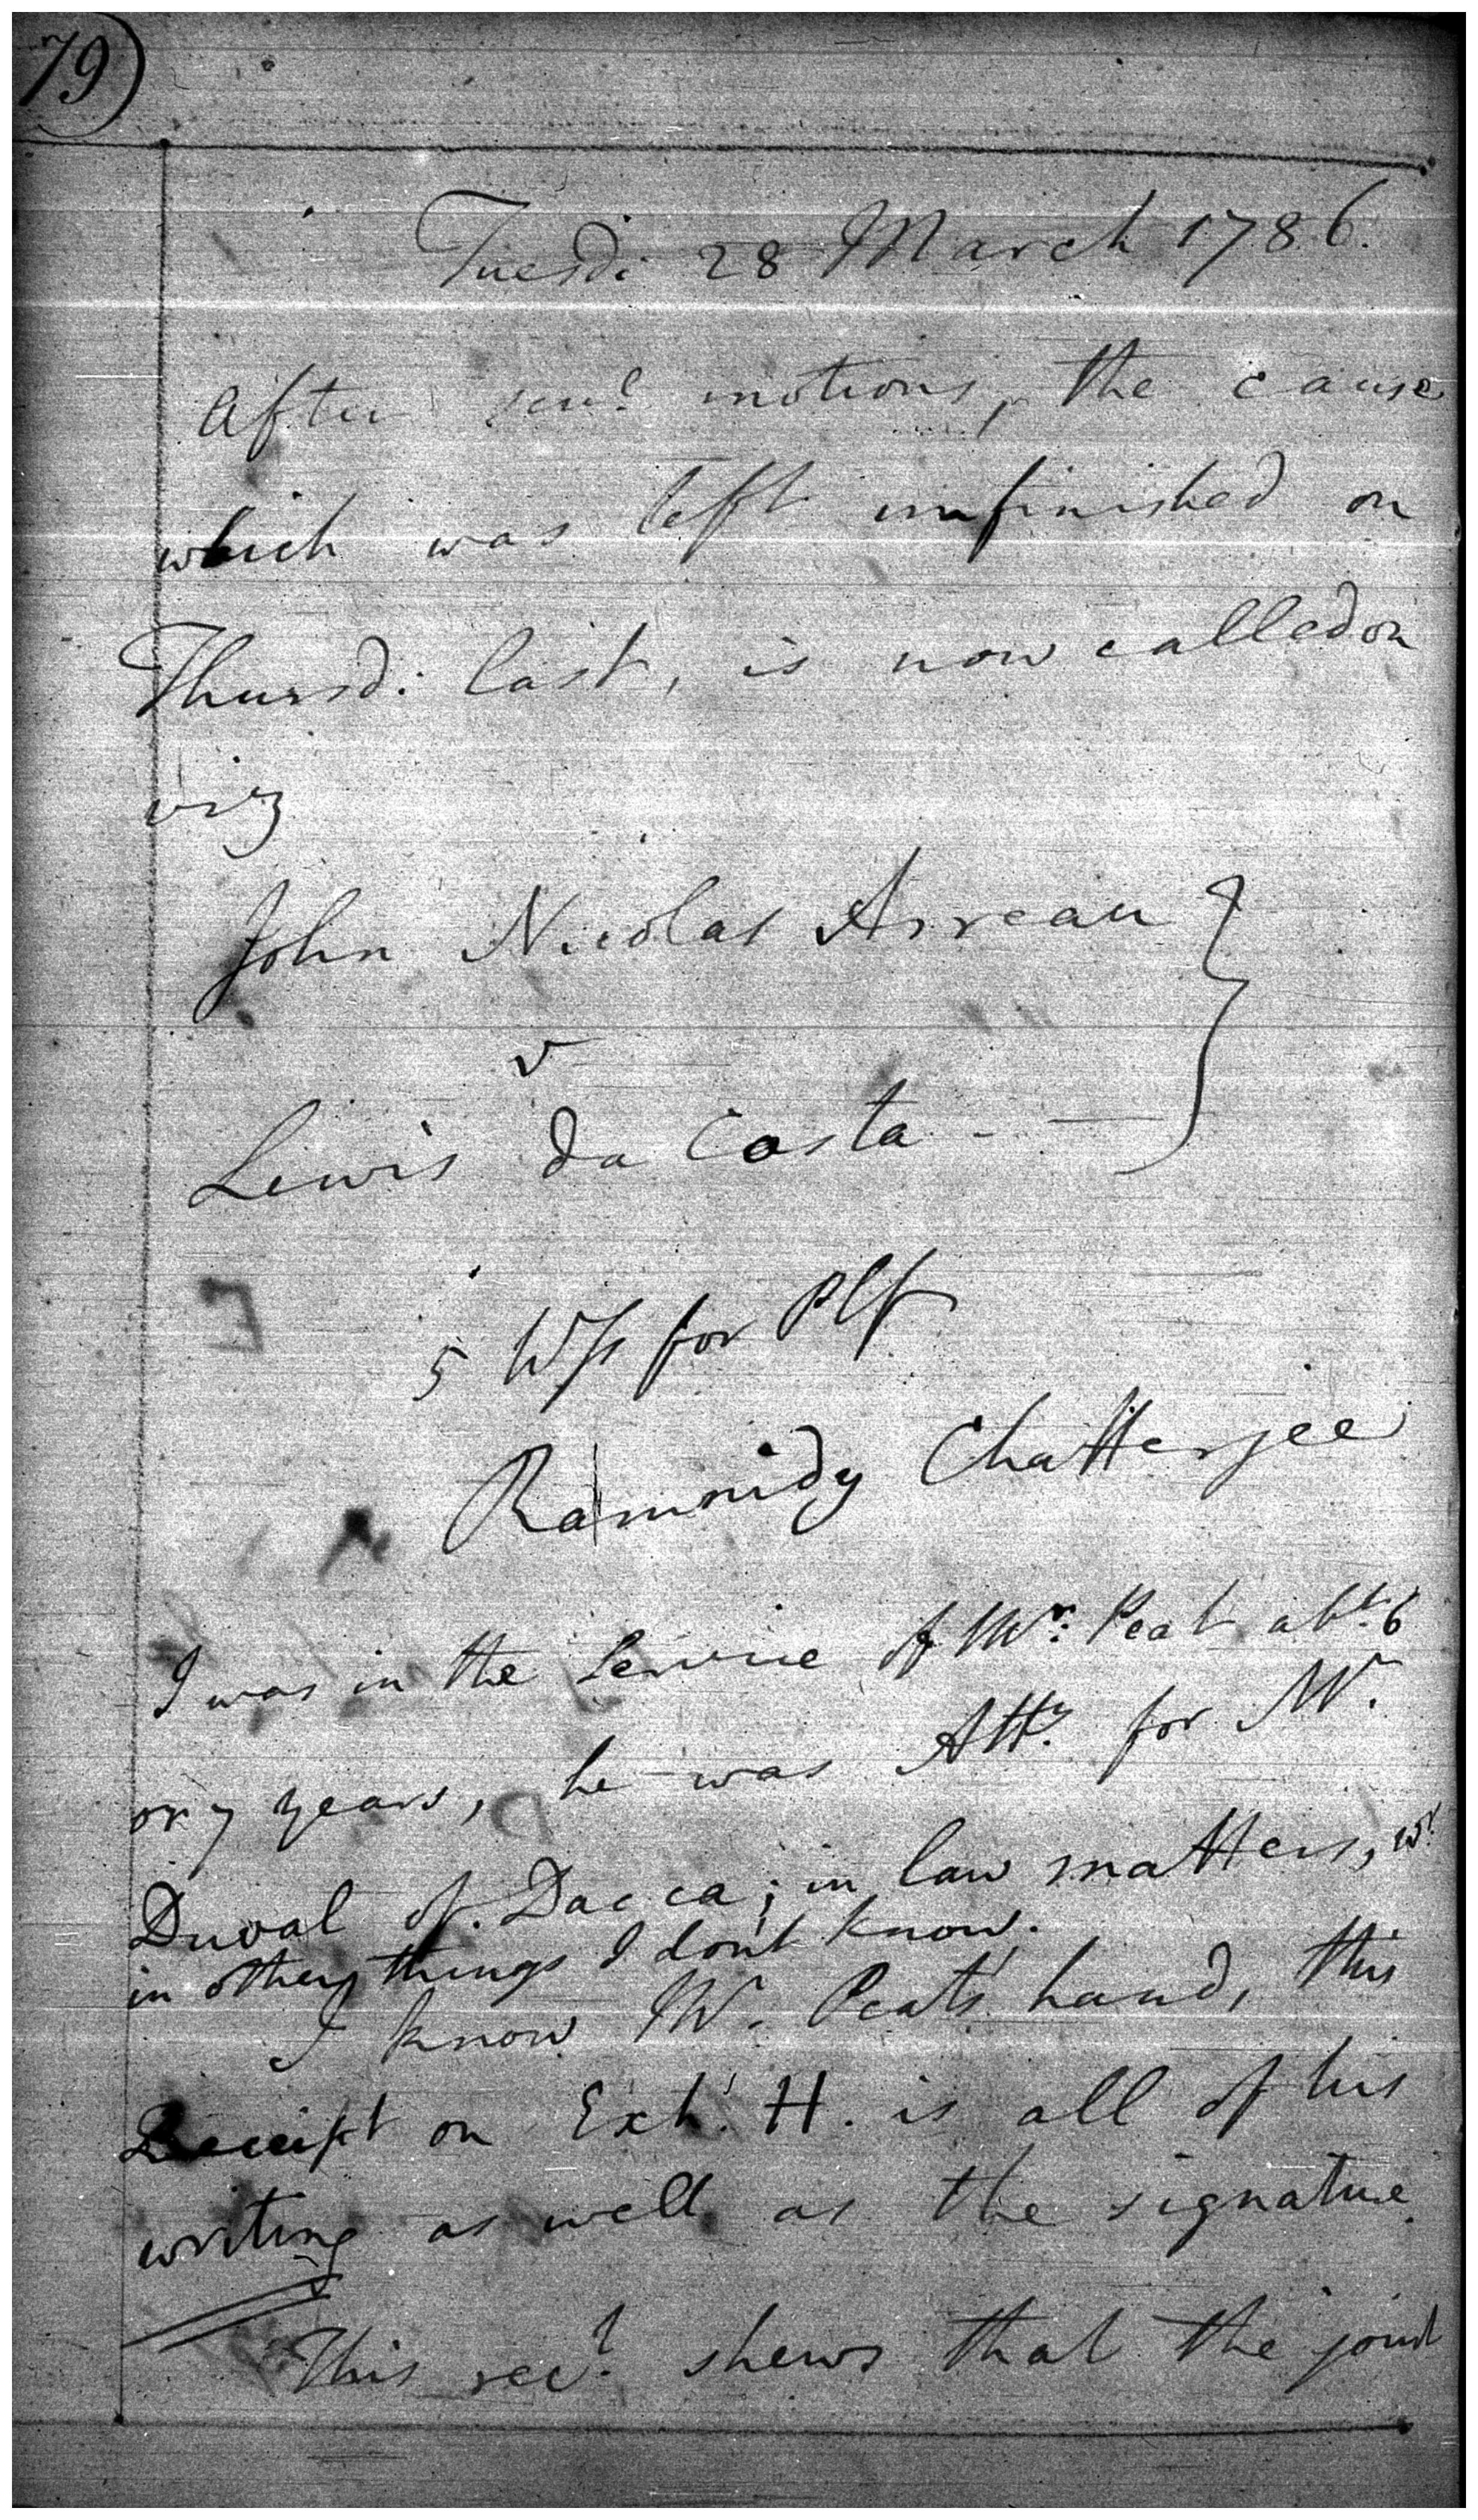 79)
Tuesd: 28 March 1786.
After sev.l motions, the cause
which was left unfinished on
Thursd: last, is now called on
viz
John Nicolas Arreau
v
Lewis da Costa - —
5 Wss for Plf
Ramnidy Chatterjee
I was in the Service of Mr: Peat abt. 6
or 7 years, he was Atty. for Mr.
Duval of Dacca; in law matters,
in other things I dont know.
I know Mr. Peat's hand, this
Receipt on Exh. H. is all of his
writing as well as the signature.
This rect. shews that the joint